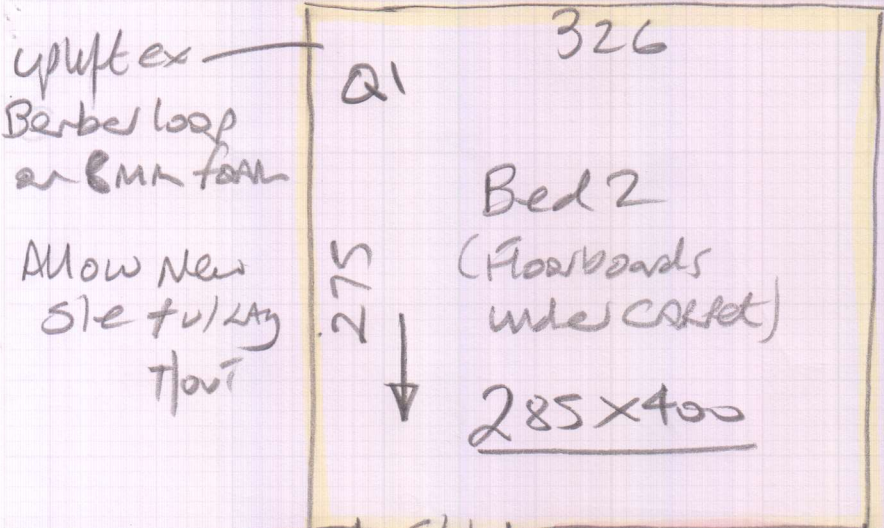 uplift ex
Berber loop
on 8mm foam
Allow New
S/e + U/LAy
T/out
326
Q1
Bed 2
(Floorboards
under CARPet)
275
285 x 400